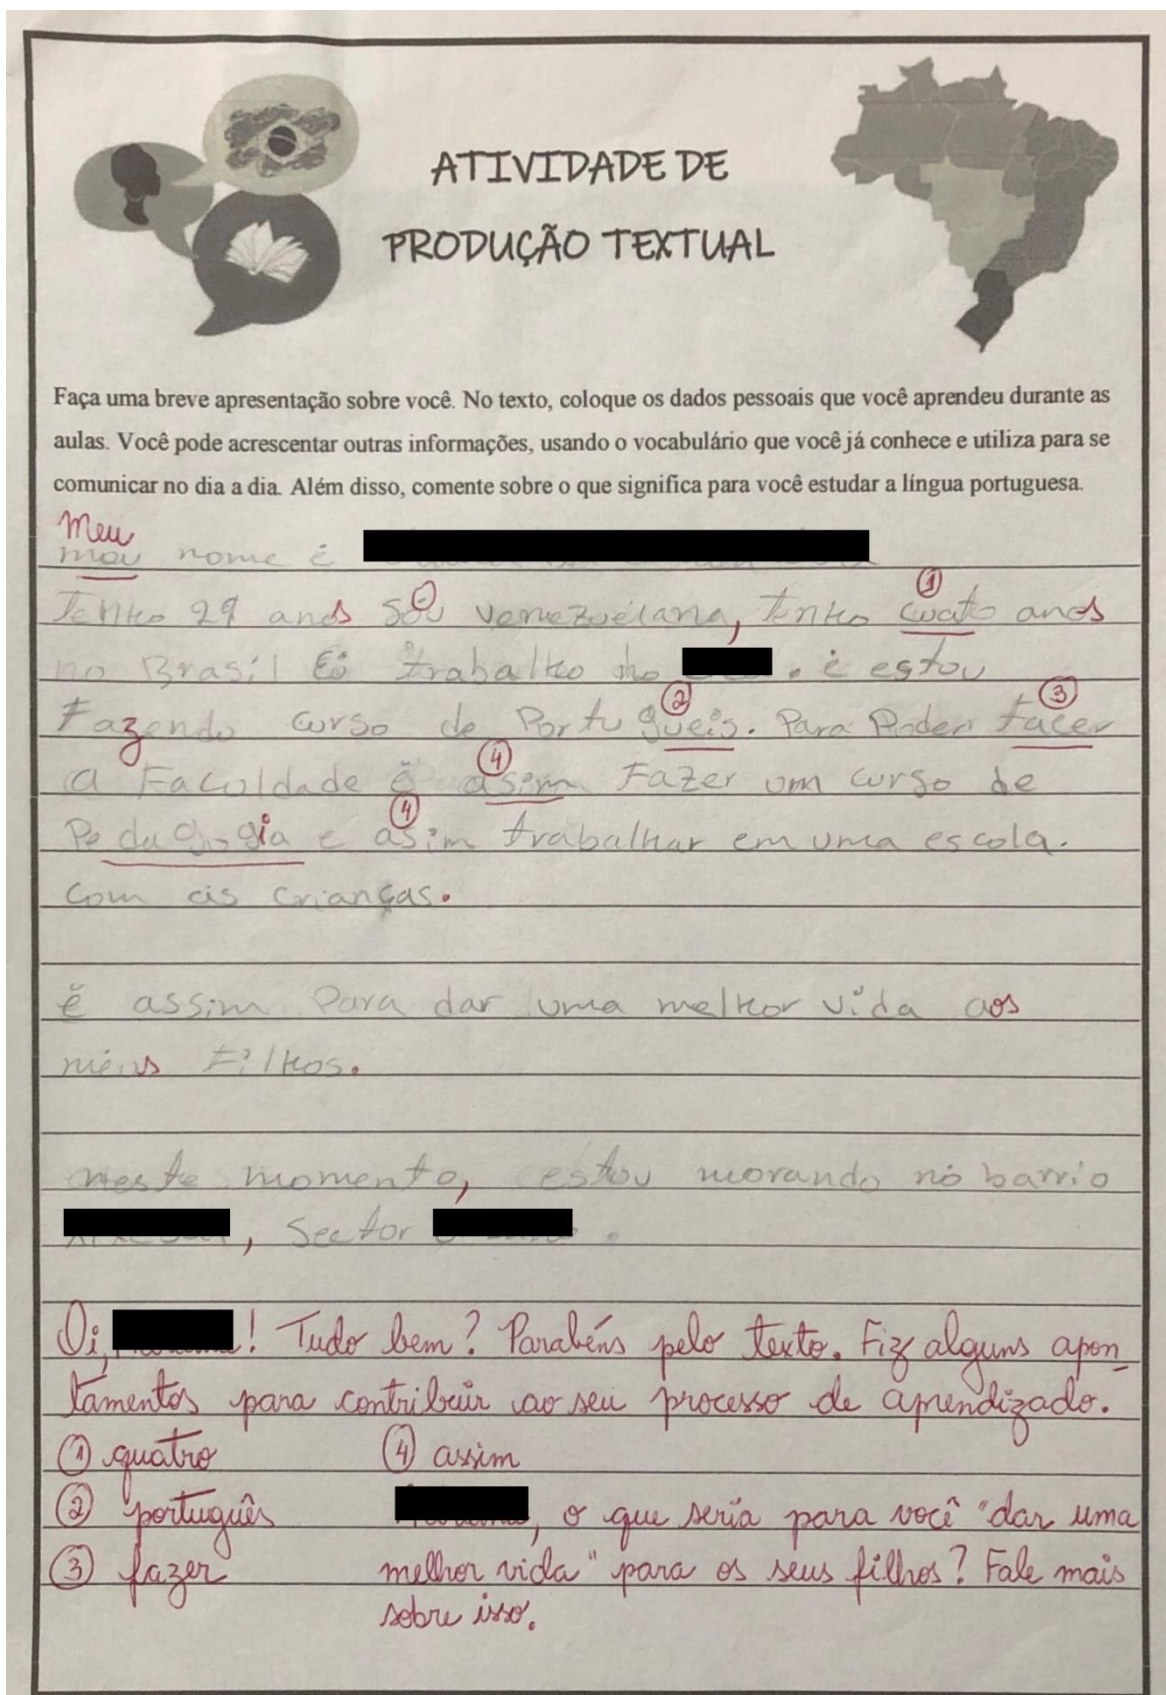 ATIVIDADE DE
PRODUÇÃO TEXTUAL
Faça uma breve apresentação sobre você. No texto, coloque os dados pessoais que você aprendeu durante as
aulas. Você pode acrescentar outras informações, usando o vocabulário que você já conhece e utiliza para se
comunicar no dia a dia. Além disso, comente sobre o que significa para você estudar a língua portuguesa.
Meu
mou nome é
①
Tenho 29 anos sou venezuelana, tenho cuato anos
no Brasil Eu trabalho no . e estou
② ③
Fazendo curso de Portugueis. Para Poder facer
④
a Faculdade é asim Fazer um curso de
④
Pedagogia e asim trabalhar em uma escola.
com as crianças.
é assim Para dar uma melhor vida aos
meus Filhos.
neste momento, estou morando no barrio
, Sector .
Oi, ! Tudo bem? Parabéns pelo texto. Fiz alguns apon-
tamentos para contribuir ao seu processo de aprendizado.
① quatro ④ assim
② português , o que seria para você "dar uma
③ fazer melhor vida" para os seus filhos? Fale mais
sobre isso.